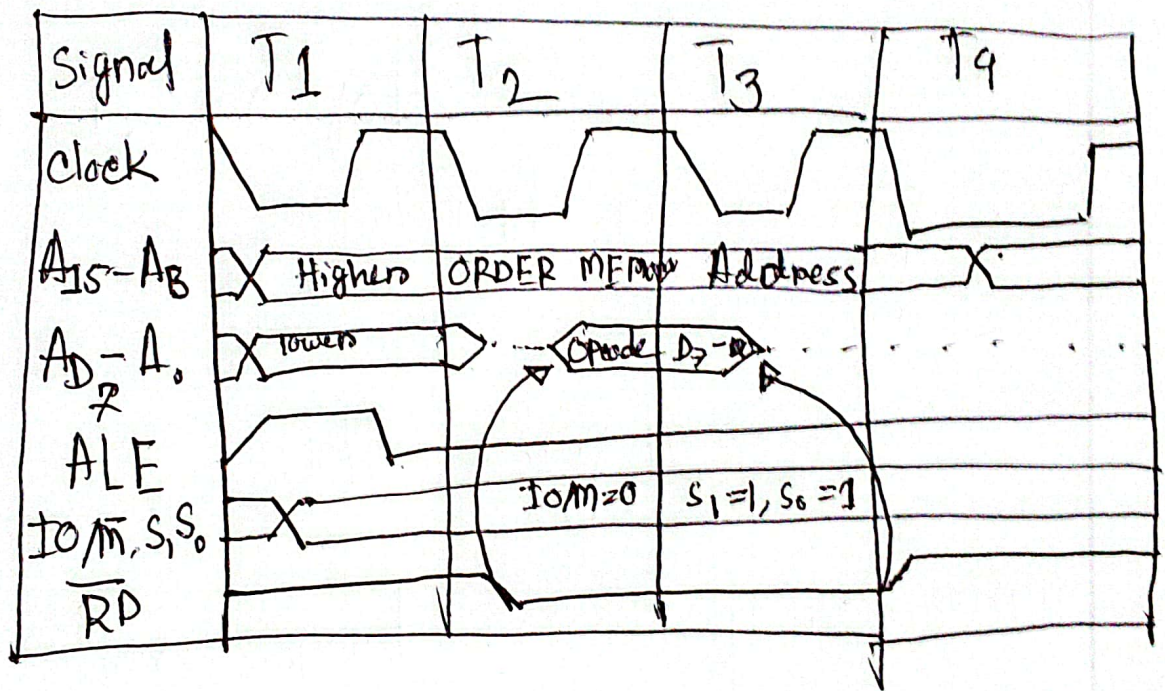 Signal T1 T2 T3 T4
Clock
A15-A8 Higher ORDER MEMORY Address
AD7-A0 Lower Opcode D7-
ALE
IO/M̅, S1 S0 IO/M=0 S1=1, S0=1
R̅D̅